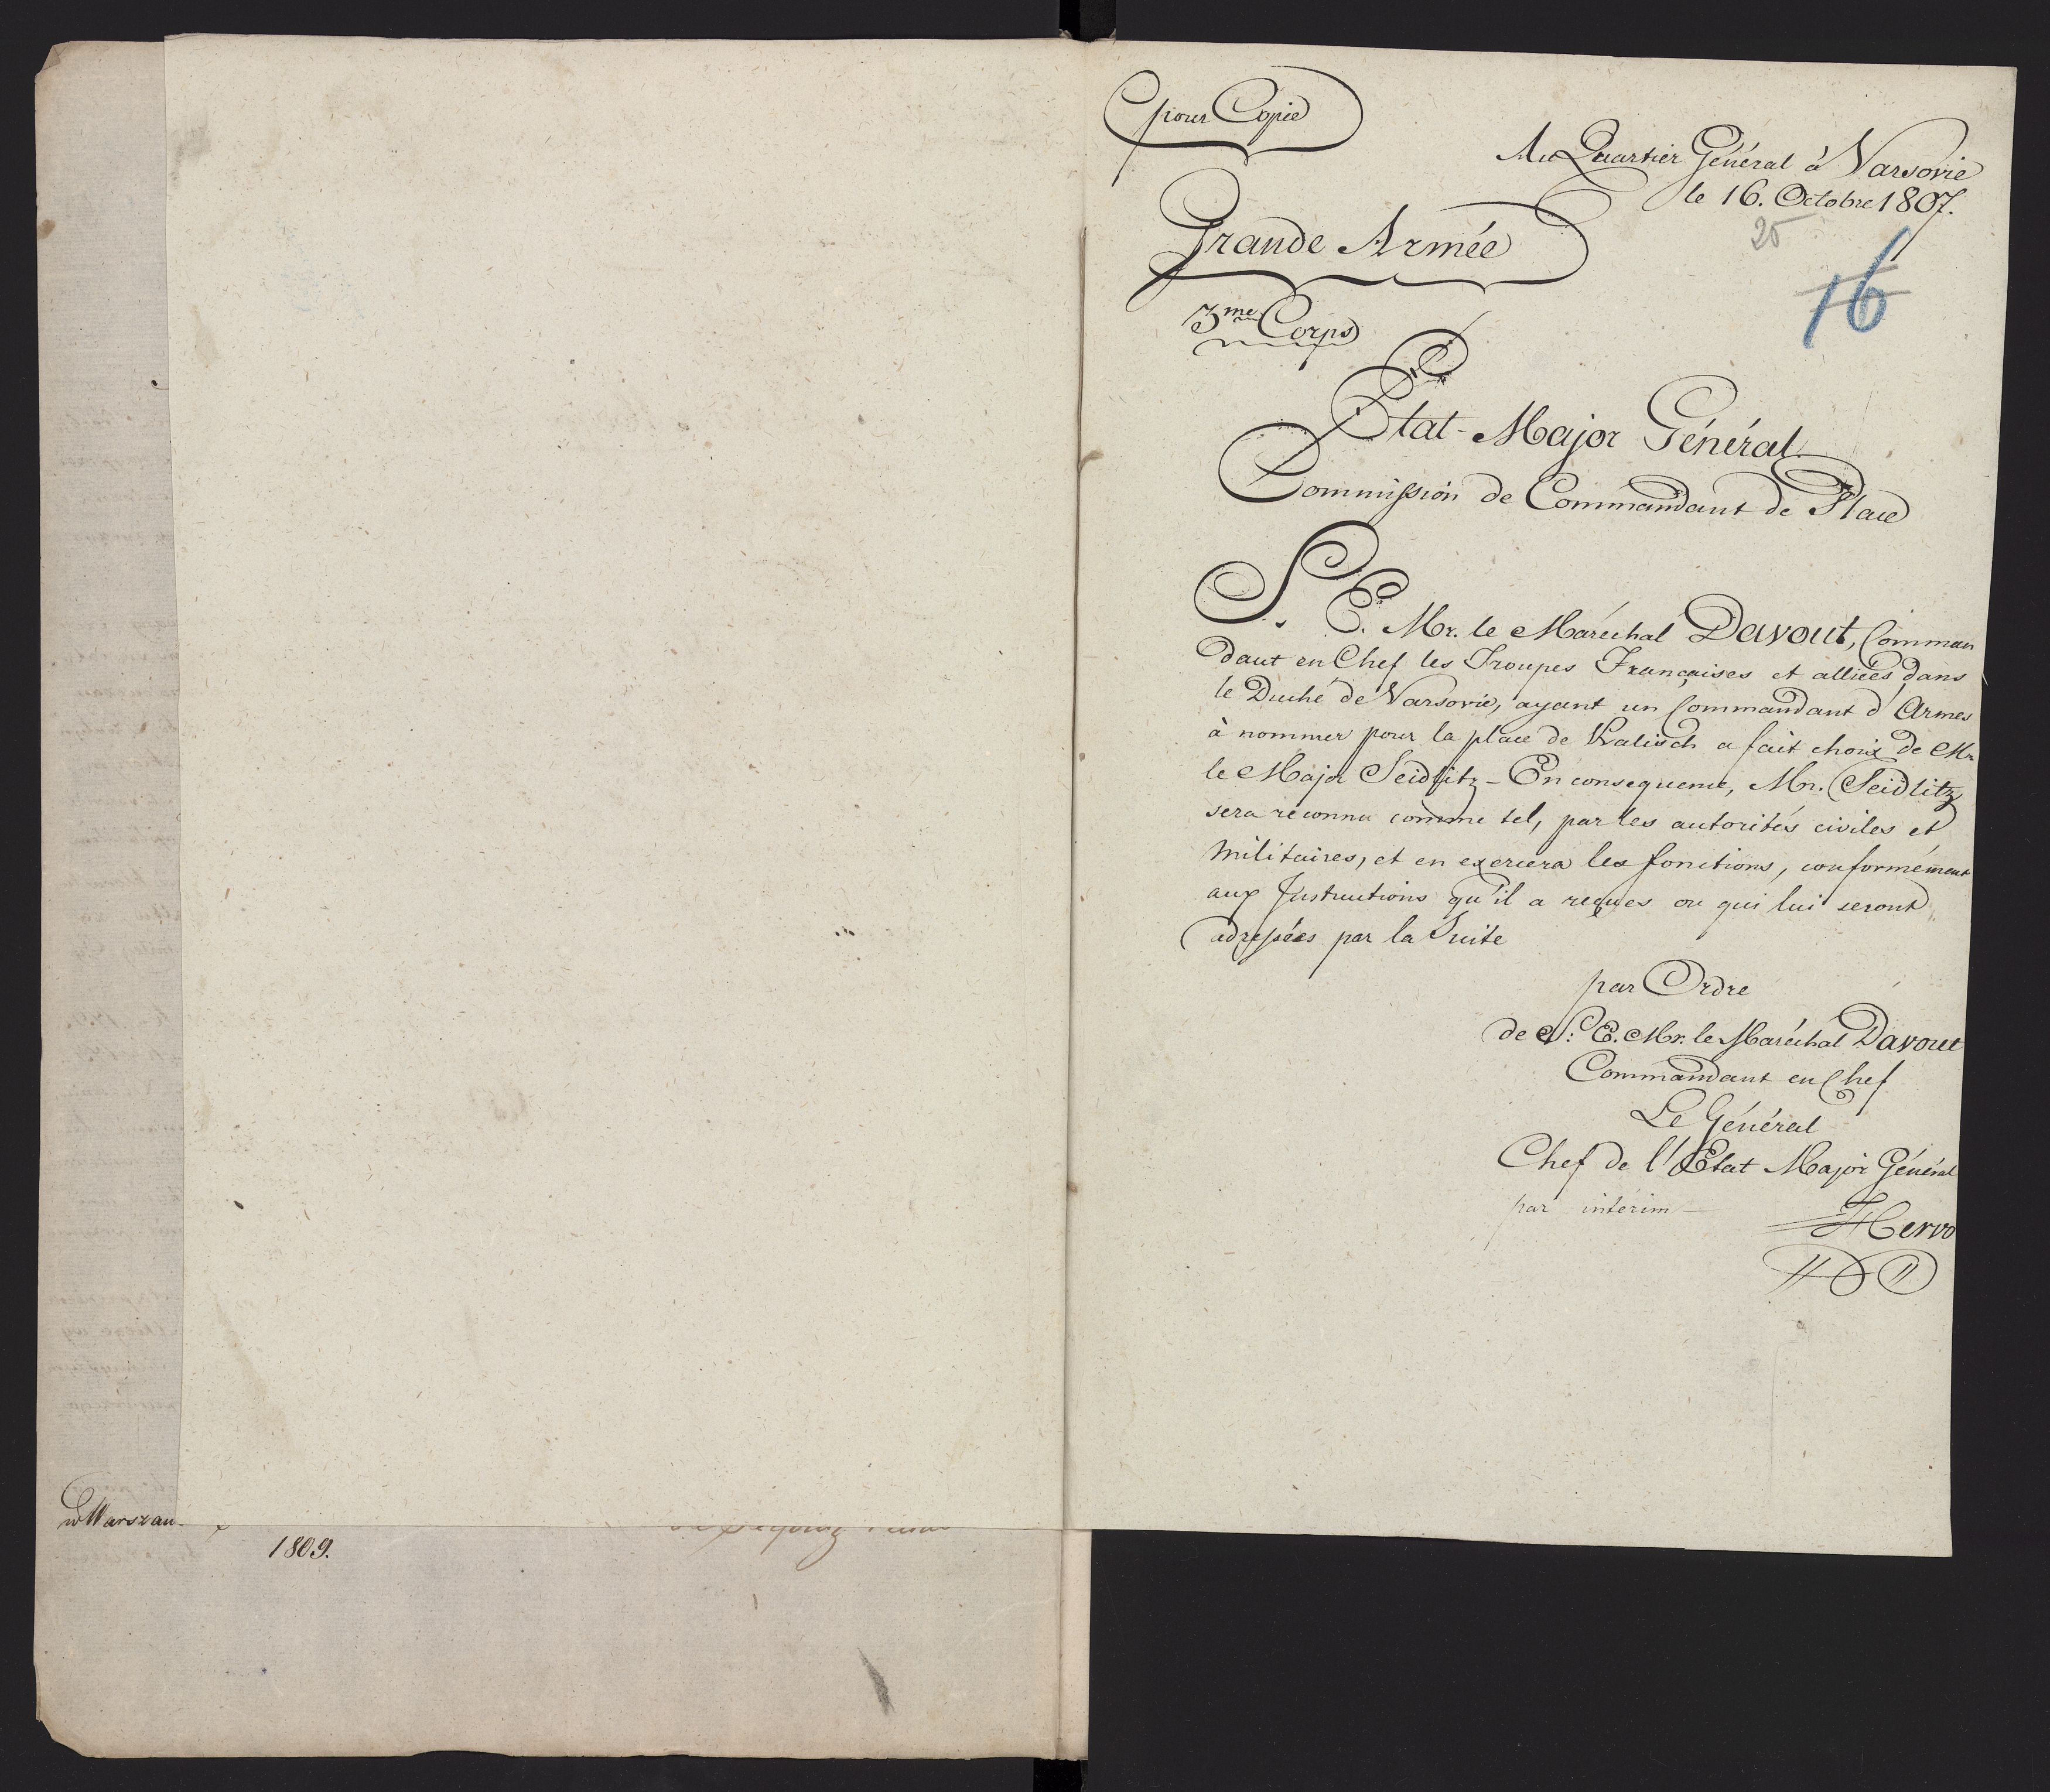 w Warszaw-
1809.
pour Copie
Au Quartier Général à Varsovie
le 16. Octobre 1807.
25
16
Grande Armée
3me Corps
Etat-Major Général
Commission de Commandant de Place
S. E. Mr. le Maréchal Davout, Comman
dant en Chef les Troupes Françaises et alliées dans
le Duché de Varsovie, ayant un Commandant d'Armes
à nommer pour la place de Kalisch a fait choix de Mr
le Major Seidlitz - En consequence, Mr. Seidlitz
sera reconnu comme tel, par les autorités civiles et
militaires, et en exercera les fonctions, conformément
aux Instructions qu'il a reçues ou qui lui seront
adressées par la Suite
par Ordre
de S: E. Mr. le Maréchal Davout
Commandant en Chef
Le Général
Chef de l'Etat Major Général
par intérim -
Hervo